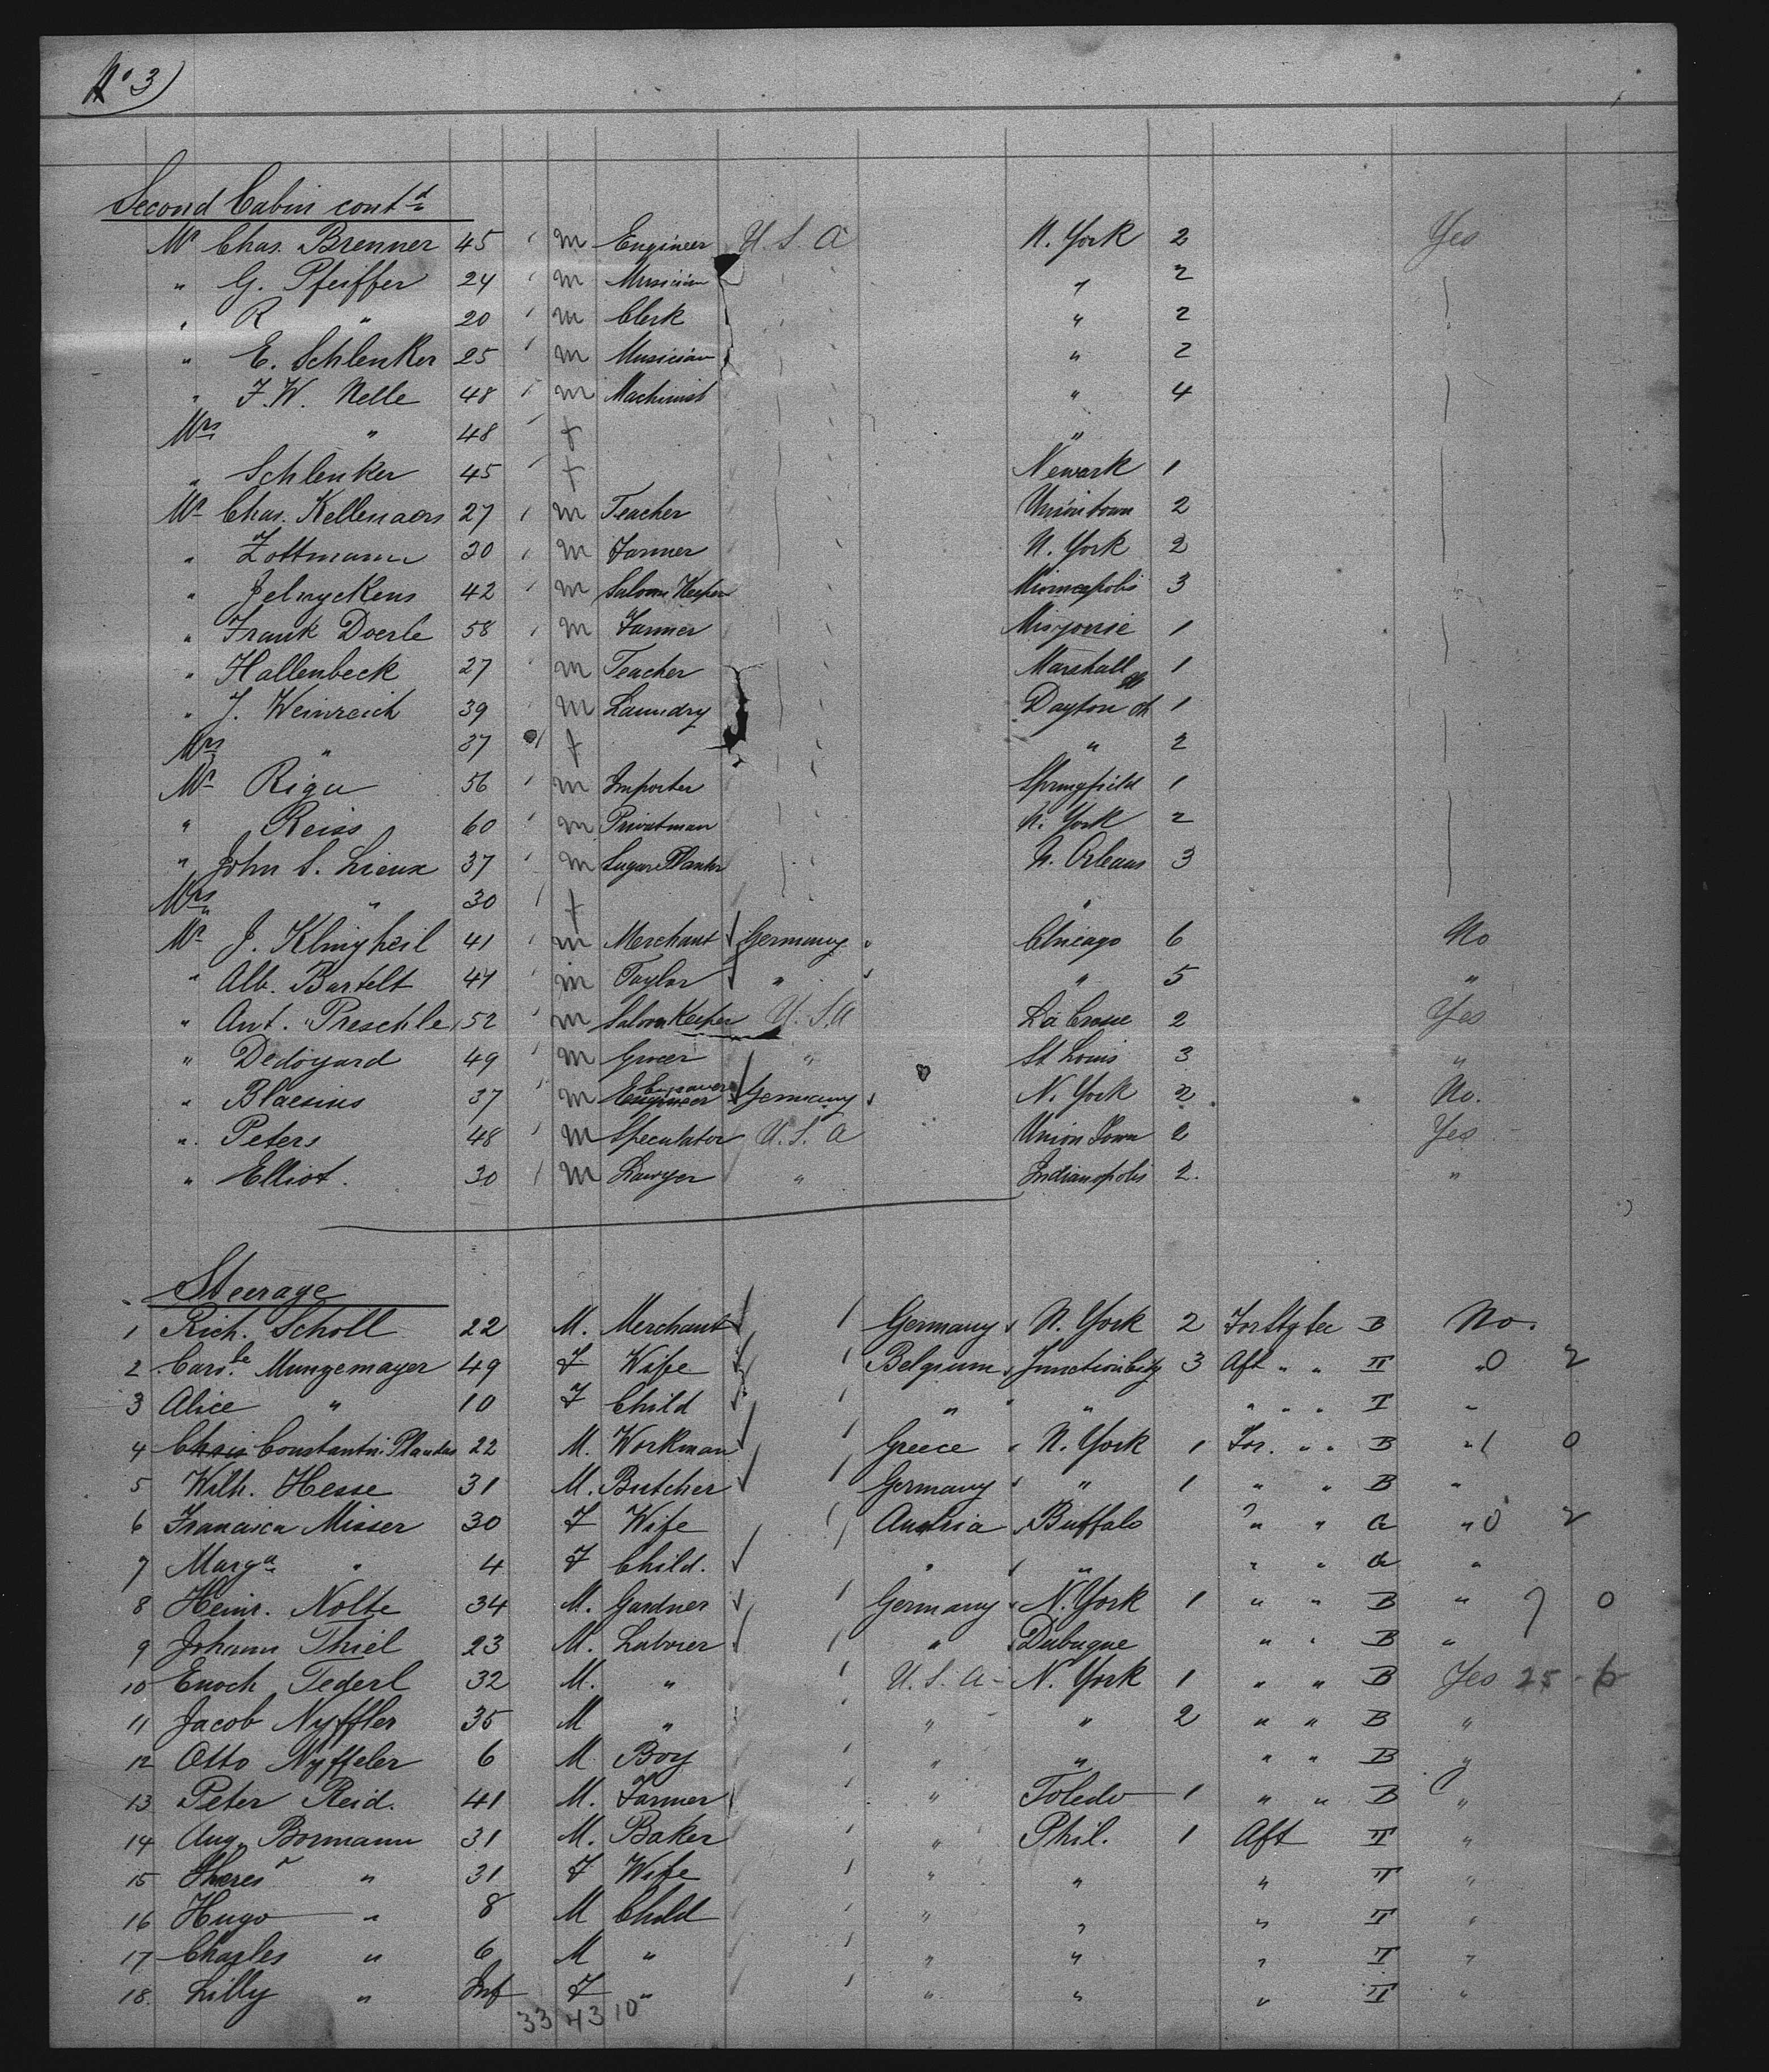 No 3)
Second Cabin contd
Mr Chas. Brenner 45 m Engineer U. S. A N. York 2 Yes
" G. Pfeiffer 24 m Musician " 2
" R " 20 m Clerk " 2
" E. Schlenker 25 m Musician " 2
" F. W. Nelle 48 m Machinist " 4
Mrs " 48 f "
" Schlenker 45 f Newark 1
Mr Chas. Kellenaers 27 m Teacher Uniontown 2
" Zottmann 30 m Farmer N. York 2
" Jelnyckens 42 m Saloon Keeper Minneapolis 3
" Frank Doerle 58 m Farmer 1
" Hallenbeck 27 m Teacher Marshall 1
" J. Weinreich 39 m Laundry Dayton Oh 1
Mrs " 37 f " 2
Mr Riga 56 m Importer Springfield 1
" Reiss 60 m Privatman N. York 2
" John S. Lieux 37 m Sugar Planter N. Orleans 3
Mrs " 30 f "
Mr J. Klingheil 41 m Merchant Germany Chicago 6 No
" Alb. Bartelt 41 m Taylor " " 5 "
" Ant. Preschle 52 m Saloon Keeper U. S. A La Crosse 2 Yes
" Dedoyard 49 m Grocer " St Louis 3 "
" Blaesius 37 m Engraver Germany N. York 2 No.
" Peters 48 m Speculator U. S. A Union Town 2 Yes
" Elliot. 30 m Lawyer " Indianopolis 2. "
Steerage
1 Rich. Scholl 22 M. Merchant Germany N. York 2 For Stgter B No.
2 Carole Mungemayer 49 F Wife Belgium Junction City 3 Aft " " II " 0 2
3 Alice " 10 F Child " " " " " I "
4 Constantin Plandas 22 M. Workman Greece N. York 1 For. " " B " 1 0
5 Wilh. Hesse 31 M. Butcher Germany " 1 " " B "
6 Francisca Misser 30 F Wife Austria Buffalo " " a " 0 2
7 Marga " 4 F Child. " " " " a "
8 Heinr. Nolte 34 M. Gardner Germany N. York 1 " " B " 7 0
9 Johann Thiel 23 M. Laborer " Dubuque " " B "
10 Enoch Federl 32 M. " U. S. A - N. York 1 " " B Yes 25 - 6
11 Jacob Nyffler 35 M " " " 2 " " B "
12 Otto Nyffeler 6 M Boy " " " " B "
13 Peter Reid. 41 M. Farmer " Toledo 1 " " B "
14 Aug. Bormann 31 M. Baker " Phil. 1 Aft II "
15 Theres " 31 F Wife " " " II "
16 Hugo " 8 M Child " " " II "
17 Charles " 6 M " " " " II "
18. Lilly " Inf F " " " " II "
33 43 10